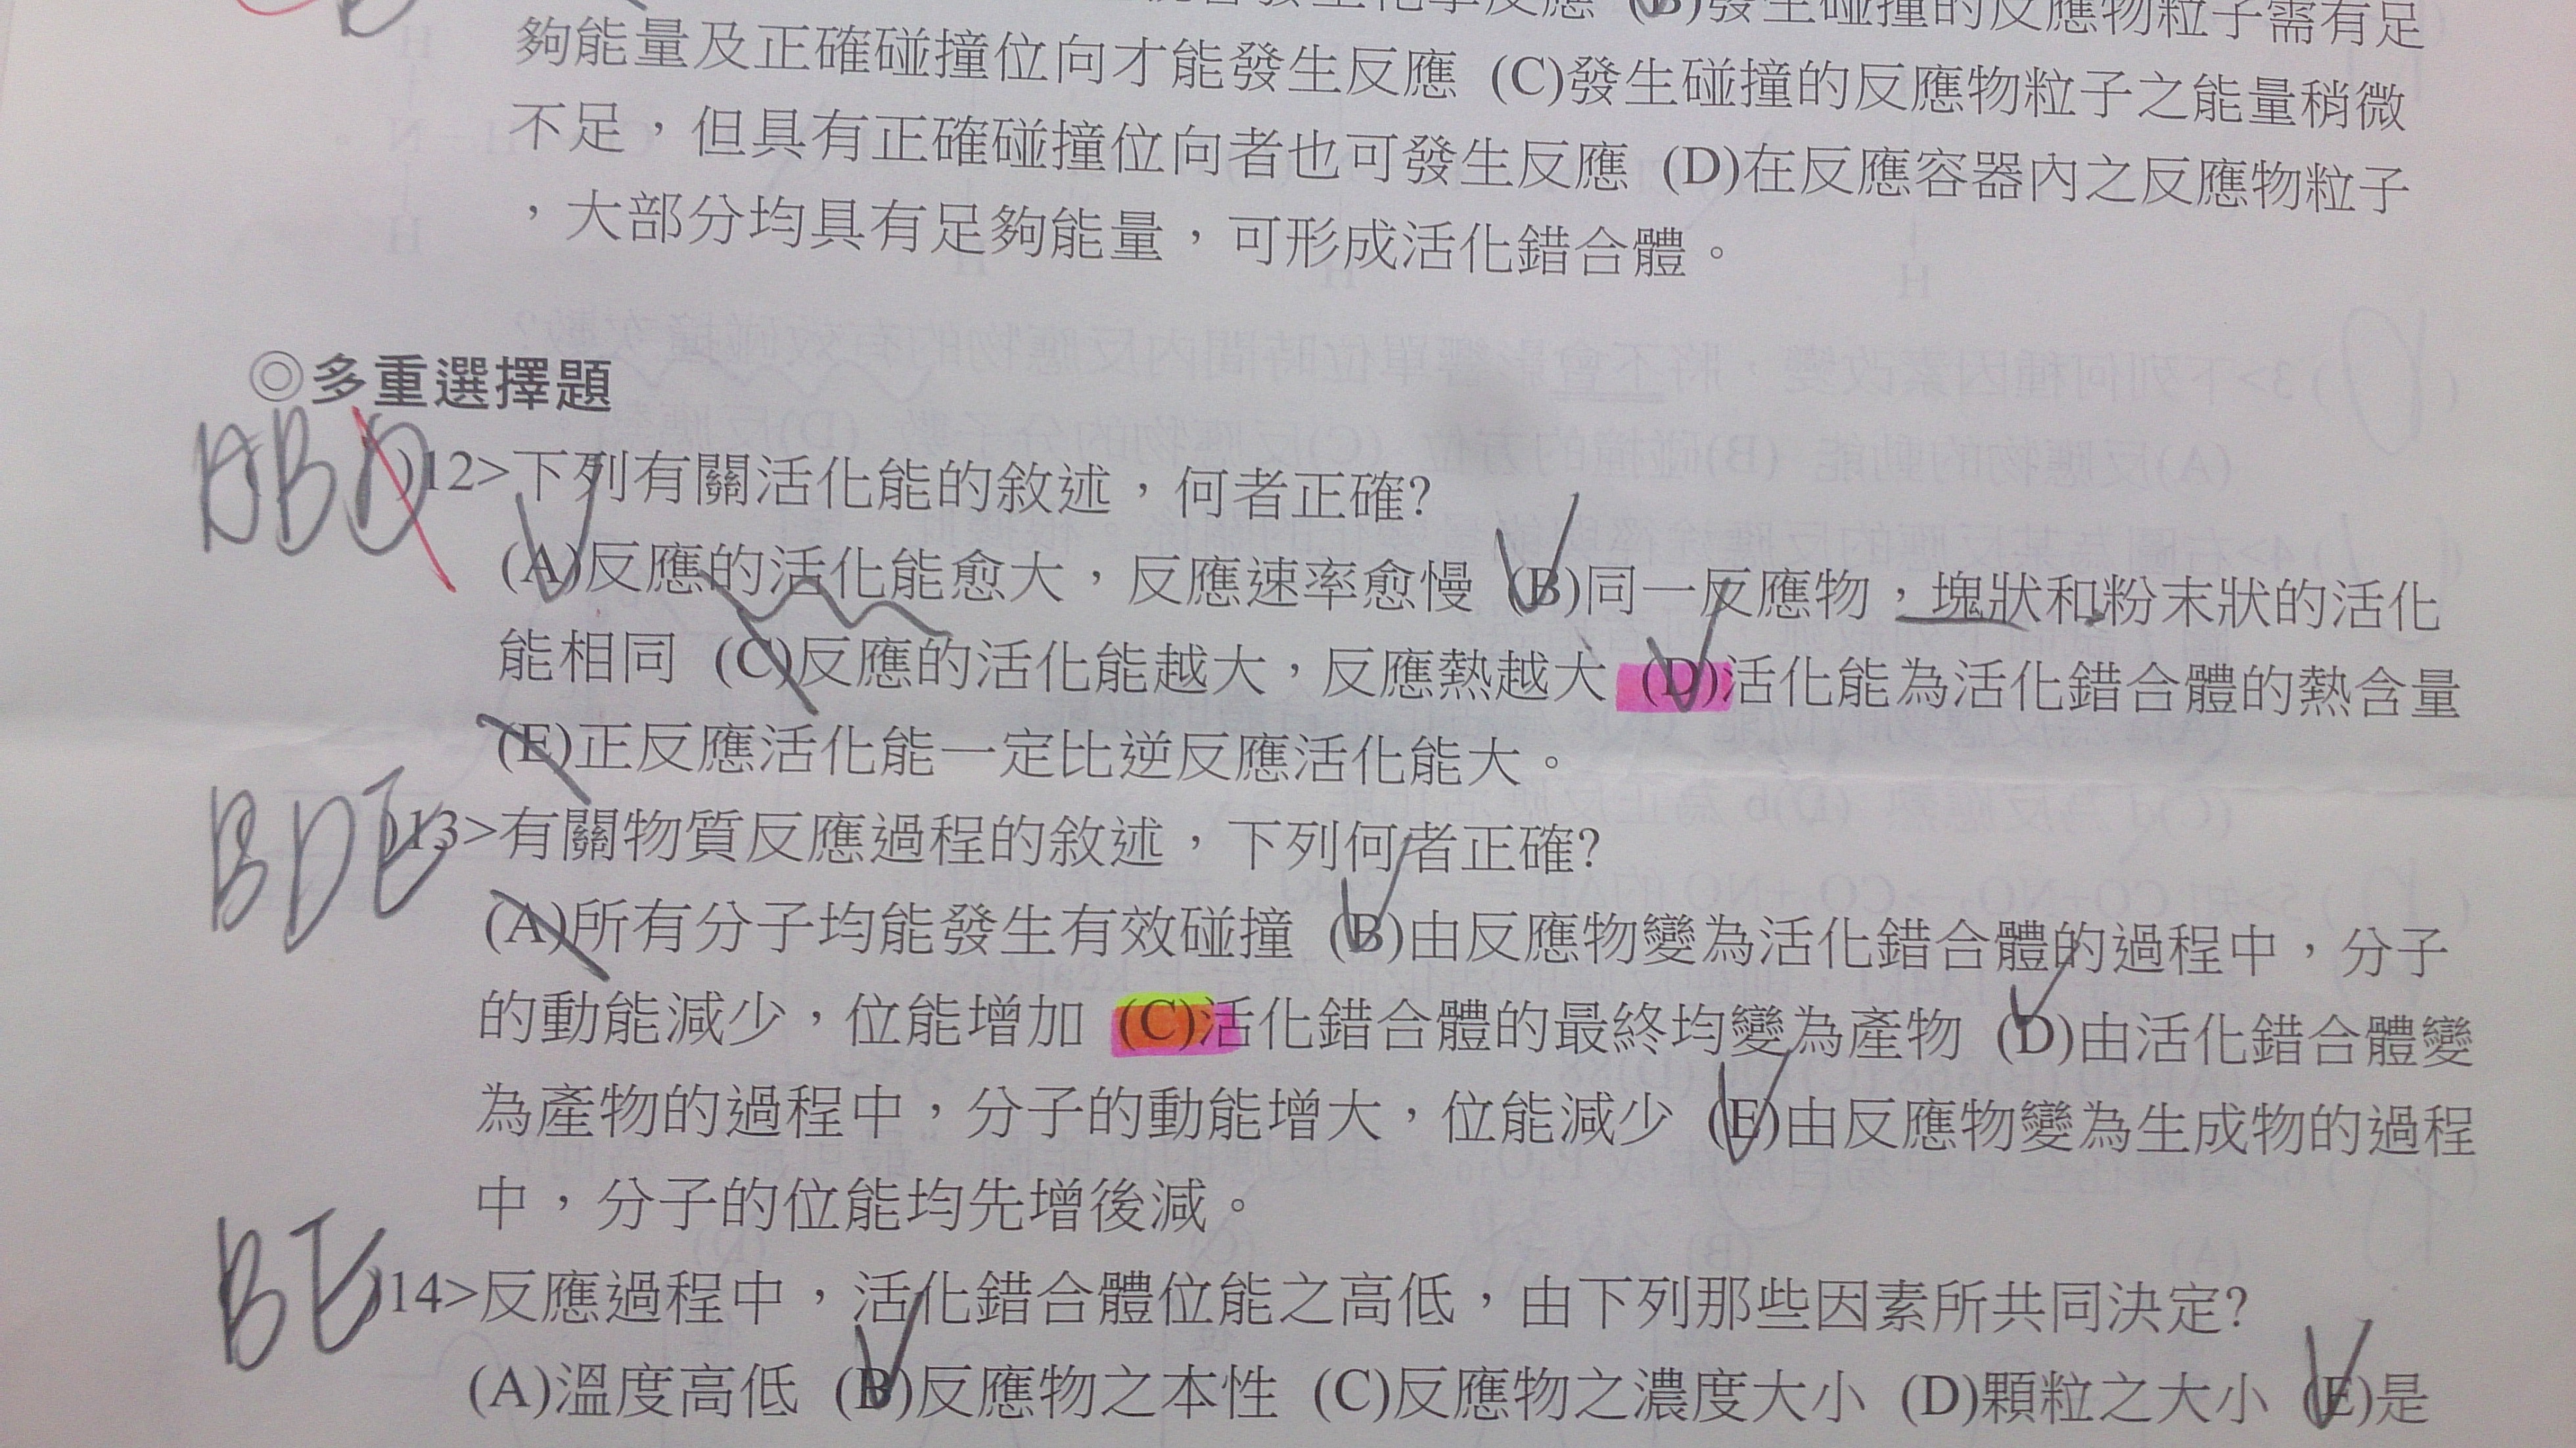 發生碰撞的反應物粒子需有足
夠能量及正確碰撞位向才能發生反應 (C)發生碰撞的反應物粒子之能量稍微
不足，但具有正確碰撞位向者也可發生反應 (D)在反應容器內之反應物粒子
，大部分均具有足夠能量，可形成活化錯合體。
◎多重選擇題
ABD )12>下列有關活化能的敘述，何者正確?
(A)反應的活化能愈大，反應速率愈慢 (B)同一反應物，塊狀和粉末狀的活化
能相同 (C)反應的活化能越大，反應熱越大 (D)活化能為活化錯合體的熱含量
(E)正反應活化能一定比逆反應活化能大。
BDE )13>有關物質反應過程的敘述，下列何者正確?
(A)所有分子均能發生有效碰撞 (B)由反應物變為活化錯合體的過程中，分子
的動能減少，位能增加 (C)活化錯合體的最終均變為產物 (D)由活化錯合體變
為產物的過程中，分子的動能增大，位能減少 (E)由反應物變為生成物的過程
中，分子的位能均先增後減。
BE )14>反應過程中，活化錯合體位能之高低，由下列那些因素所共同決定?
(A)溫度高低 (B)反應物之本性 (C)反應物之濃度大小 (D)顆粒之大小 (E)是